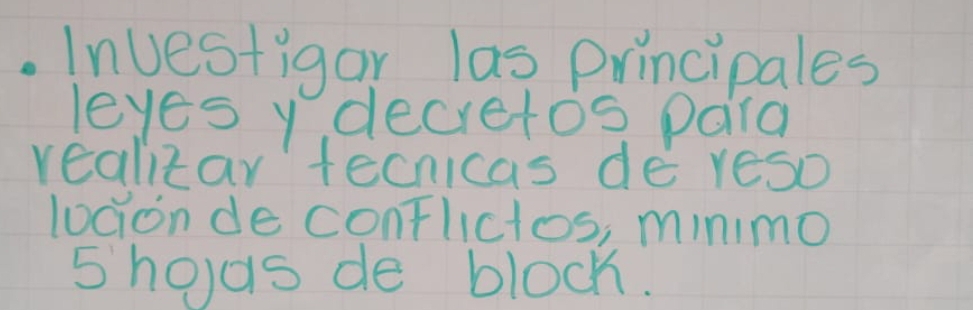 . Investigar las principales
leyes y decretos para
realizar tecnicas de reso
lución de conflictos, minimo
5 hojas de block.